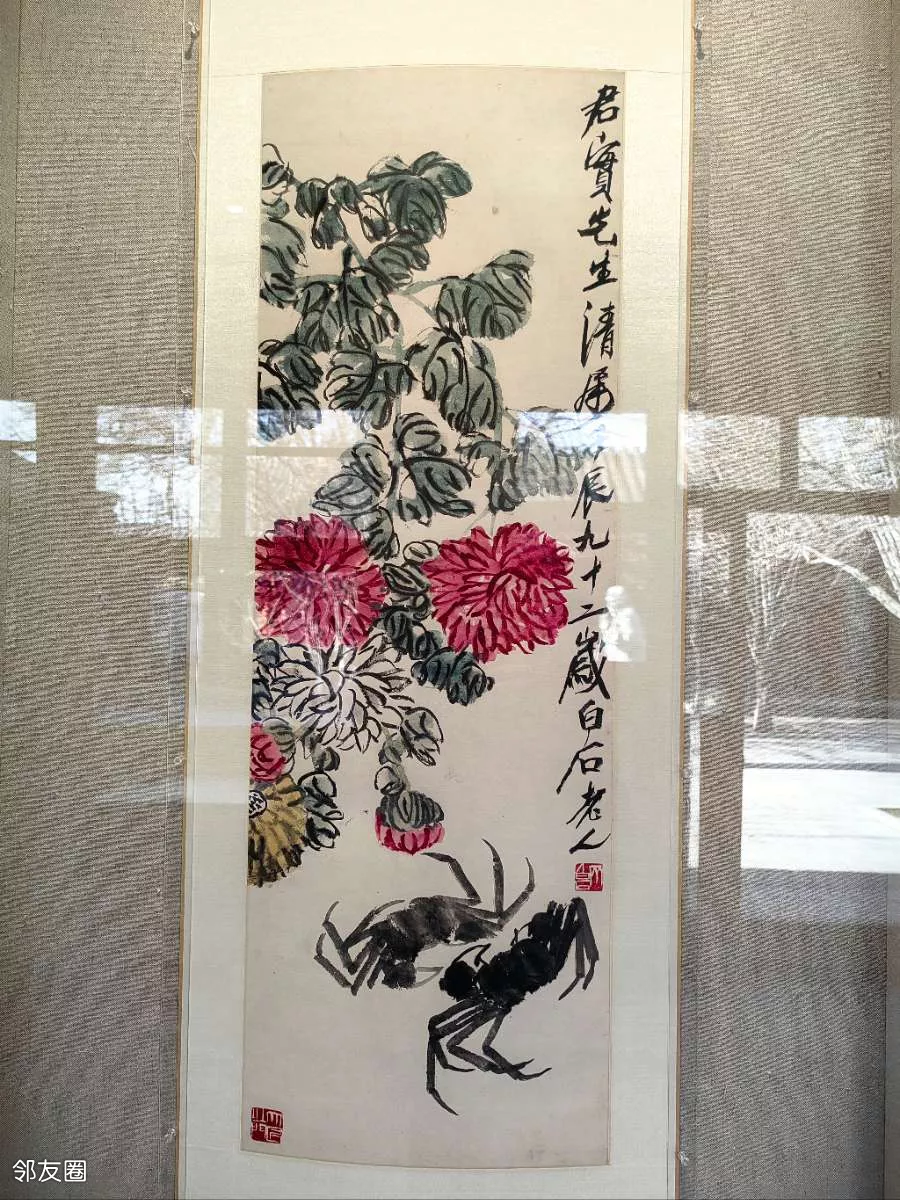 君實先生清屬
辰九十二歲白石老人
邻友圈